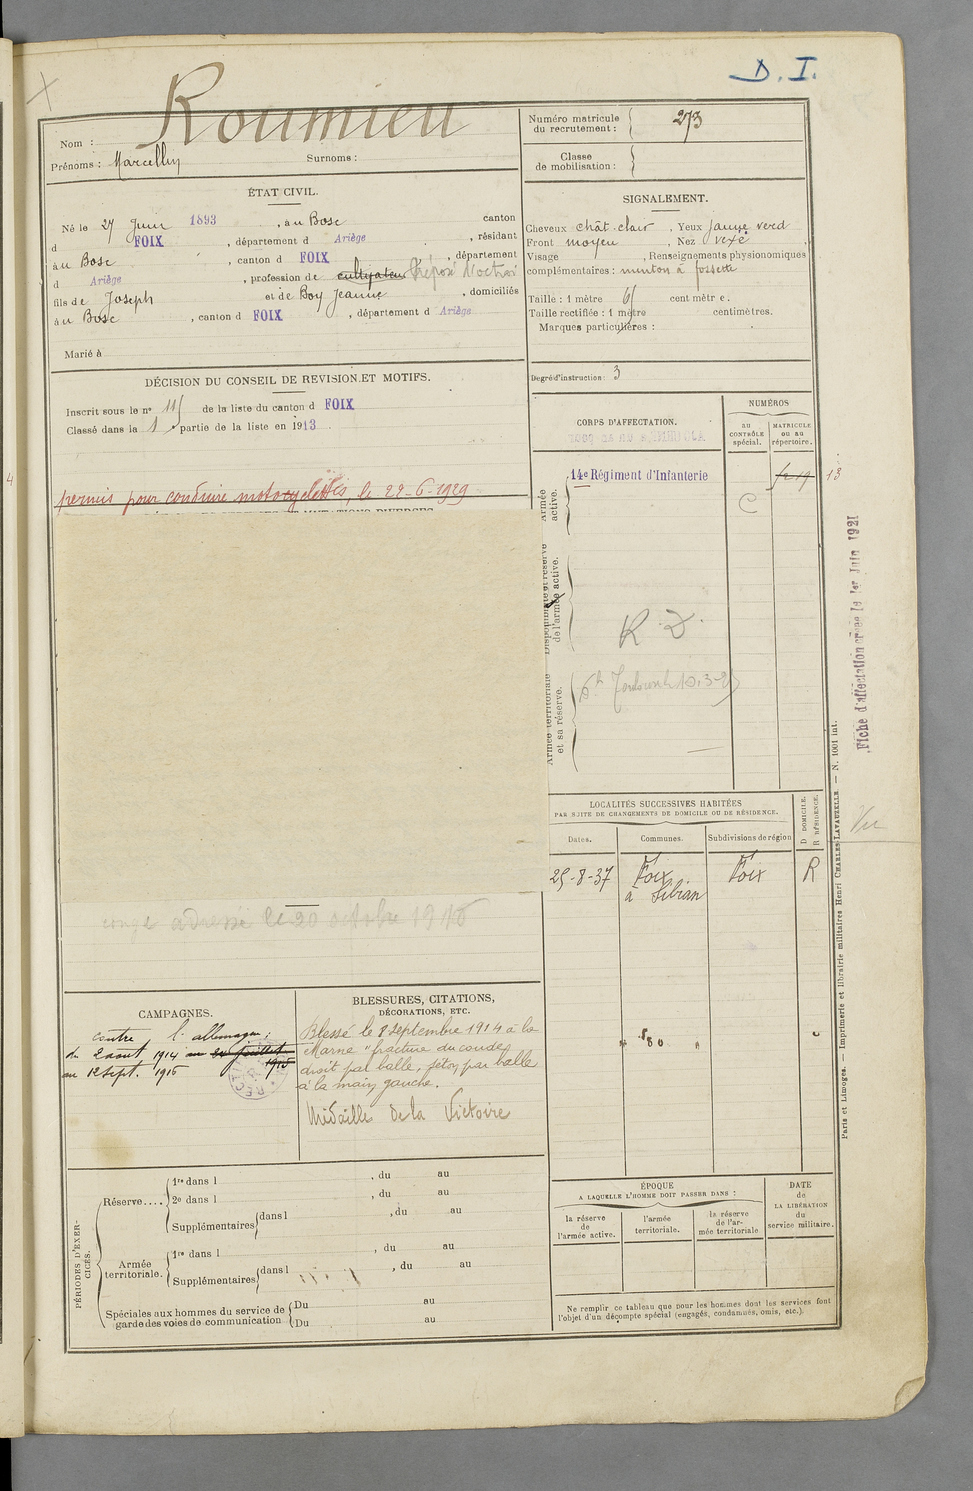 D. I.
Nom : Roumieu
Prénoms : Marcellin Surnoms :
Numéro matricule du recrutement : 273
Classe de mobilisation :
ÉTAT CIVIL.
Né le 27 Juin 1893, à u Bosc canton
d FOIX, département d Ariège, résidant
à u Bosc, canton d FOIX, département
d Ariège, profession de cultivateur Préposé d'octroi
fils de Joseph et de Boy Jeanne, domiciliés
à u Bosc, canton d FOIX, département d Ariège
Marié à
SIGNALEMENT.
Cheveux chât. clair. Yeux jaune verd
Front moyen, Nez vexé
Visage, Renseignements physionomiques
complémentaires : menton à fossette
Taille : 1 mètre 65 centimètre.
Taille rectifiée : 1 mètre centimètres.
Marques particulières :
Degré d'instruction : 3
DÉCISION DU CONSEIL DE REVISION ET MOTIFS.
Inscrit sous le n° 115 de la liste du canton d FOIX
Classé dans la 1 partie de la liste en 1913.
permis pour conduire motocyclettes, le 22-6-1929
CORPS D'AFFECTATION.
NUMÉROS
au CONTRÔLE spécial.
MATRICULE ou au répertoire.
Armée active.
14e Régiment d'Infanterie
13
C
Disponibilité et réserve de l'armée active.
R. D.
Armée territoriale et sa réserve.
Fiche d'affectation créée le 1er Juin 1921
LOCALITÉS SUCCESSIVES HABITÉES
PAR SUITE DE CHANGEMENTS DE DOMICILE OU DE RÉSIDENCE.
Dates. Communes. Subdivisions de région
D DOMICILE.
R RÉSIDENCE.
25-8-37 Foix Foix R
à Sibian
congé adressé le 20 octobre 1916
CAMPAGNES.
contre l'allemagne ;
du 2 aout 1914 au 24 juillet 1915
au 12 Sept. 1916
BLESSURES, CITATIONS,
DÉCORATIONS, ETC.
Blessé le 8 Septembre 1914 à la
Marne "fracture du coude
droit par balle, séton par balle
à la main gauche.
Médaille de la Victoire
PÉRIODES D'EXERCICES.
Réserve....
1re dans l , du au
2e dans l , du au
Supplémentaires dans l , du au
Armée territoriale.
1re dans l , du au
Supplémentaires dans l , du au
Spéciales aux hommes du service de garde des voies de communication
Du au
Du au
ÉPOQUE
A LAQUELLE L'HOMME DOIT PASSER DANS :
la réserve de l'armée active.
l'armée territoriale.
la réserve de l'armée territoriale
DATE de LA LIBÉRATION du service militaire.
Ne remplir ce tableau que pour les hommes dont les services font
l'objet d'un décompte spécial (engagés, condamnés, omis, etc.).
Paris et Limoges. — Imprimerie et librairie militaires Henri CHARLES-LAVAUZELLE. — N. 1001 int.